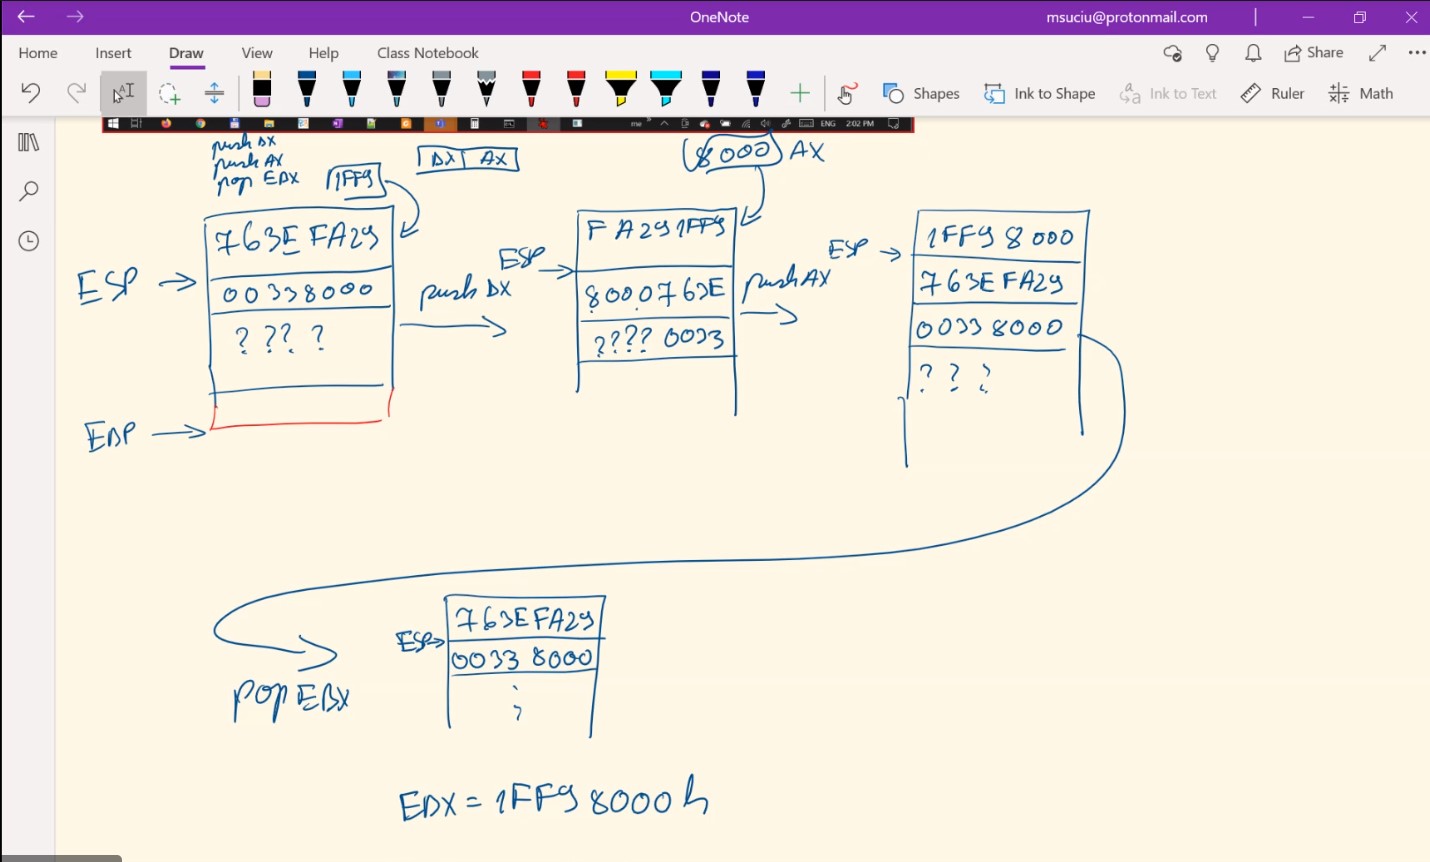 OneNote
msuciu@protonmail.com
Home Insert Draw View Help Class Notebook
Share
Shapes Ink to Shape Ink to Text Ruler Math
ENG 2:02 PM
push DX
push AX
pop EBX
1FF9
DX AX
8000 AX
763E FA29
ESP
00338000
? ?? ?
EBP
push DX
FA291FF9
ESP
8000763E
???? 0033
push AX
1FF9 8000
ESP
763E FA29
0033 8000
? ? ?
pop EBX
763E FA29
ESP
0033 8000
EBX = 1FF9 8000 h